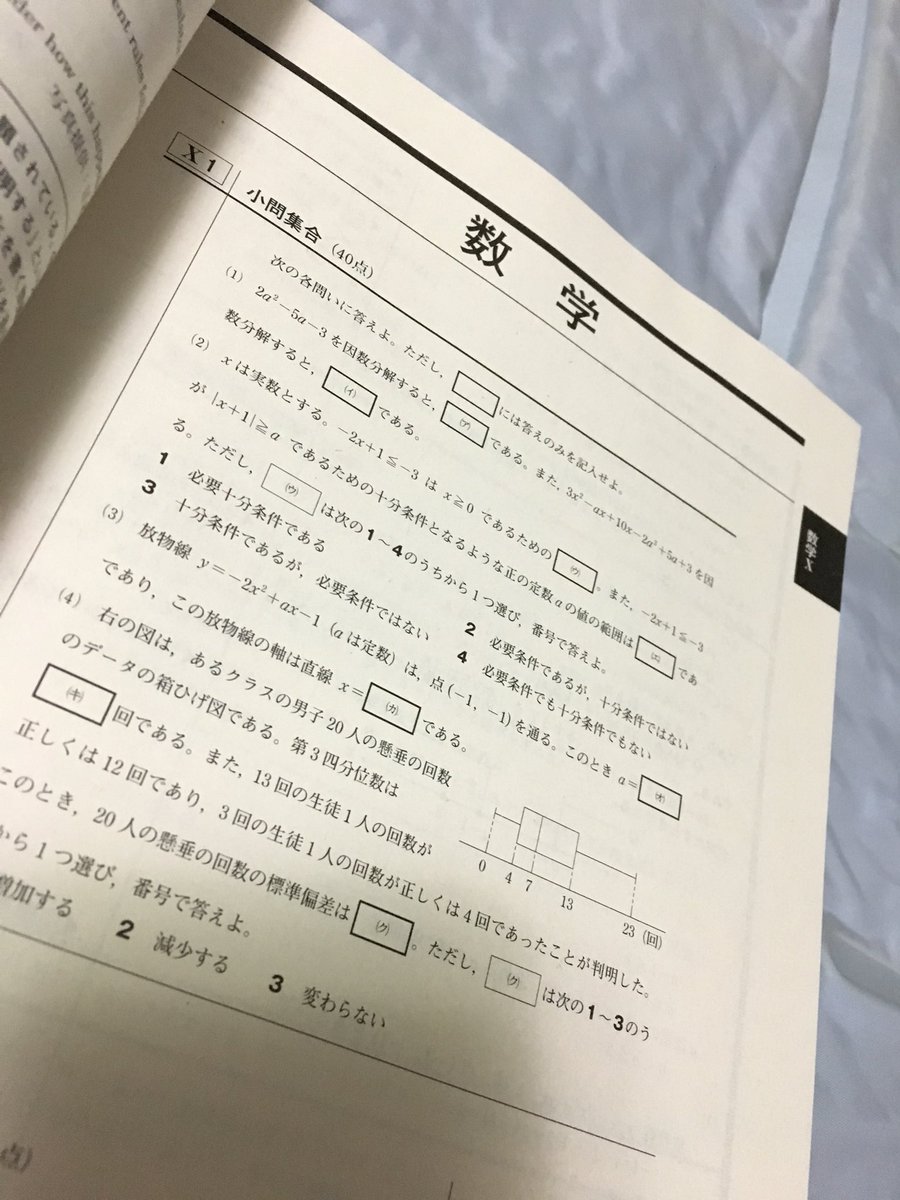 数学
X 1
小問集合 (40点)
次の各問いに答えよ。ただし，□には答えのみを記入せよ。
(1) 2a²－5a－3 を因数分解すると，(ア)である。また，3x²－ax＋10x－2a²＋5a＋3 を因
数分解すると，(イ)である。
(2) x は実数とする。－2x＋1≦－3 は x≧0 であるための(ウ)。また，－2x＋1≦－3
が |x＋1|≧a であるための十分条件となるような正の定数 a の値の範囲は(エ)であ
る。ただし，(ウ)は次の1～4のうちから1つ選び，番号で答えよ。
1 必要十分条件である 2 必要条件であるが，十分条件ではない
3 十分条件であるが，必要条件ではない 4 必要条件でも十分条件でもない
(3) 放物線 y＝－2x²＋ax－1 (a は定数) は，点(－1，－1)を通る。このとき a＝(オ)
であり，この放物線の軸は直線 x＝(カ)である。
(4) 右の図は，あるクラスの男子20人の懸垂の回数
のデータの箱ひげ図である。第3四分位数は
(キ)回である。また，13回の生徒1人の回数が
正しくは12回であり，3回の生徒1人の回数が正しくは4回であったことが判明した。
このとき，20人の懸垂の回数の標準偏差は(ク)。ただし，(ク)は次の1～3のう
から1つ選び，番号で答えよ。
増加する 2 減少する 3 変わらない
0 4 7 13 23 (回)
数学X
点)